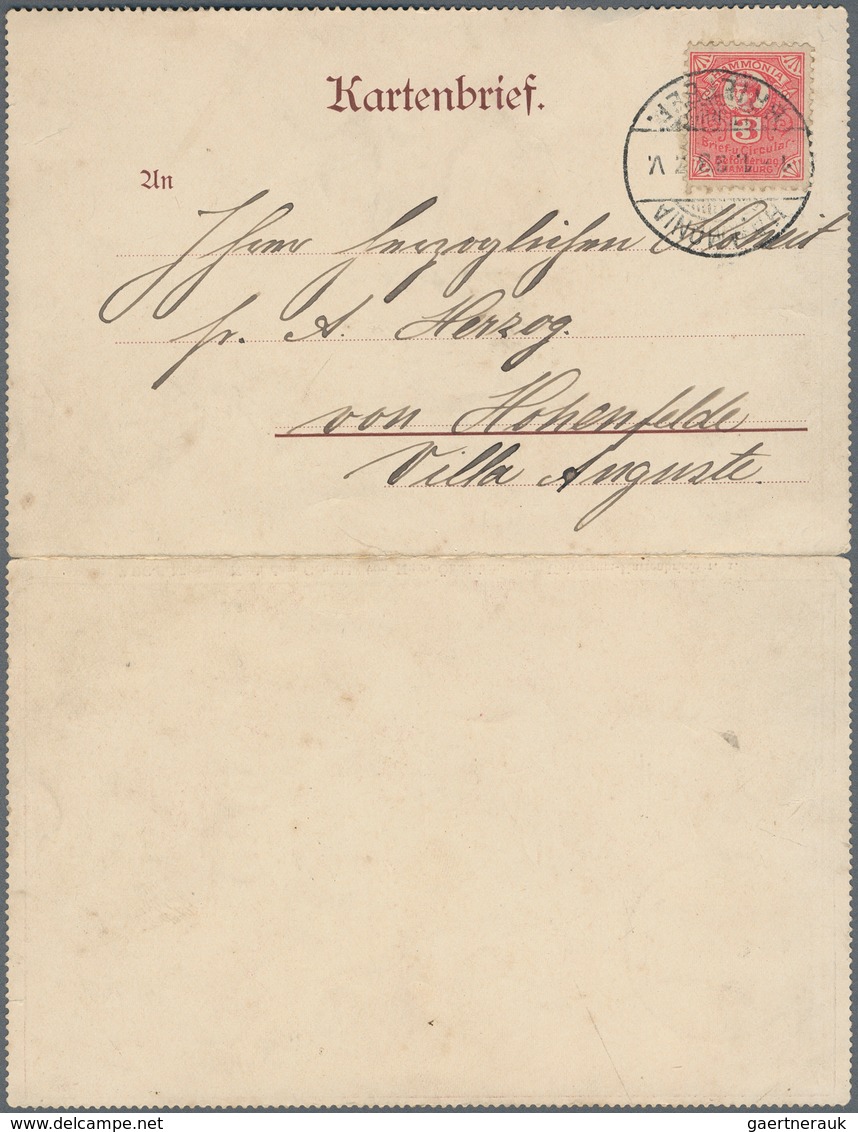 Kartenbrief.
HAMMONIA
3
Brief-u. Circular-
Beförderung
HAMBURG
HAMMONIA
An
Ihrer herzoglichen Hoheit
fr. A. Herzog.
von Hohenfelde
Villa Auguste.
www.delcampe.net
gaertnerauk